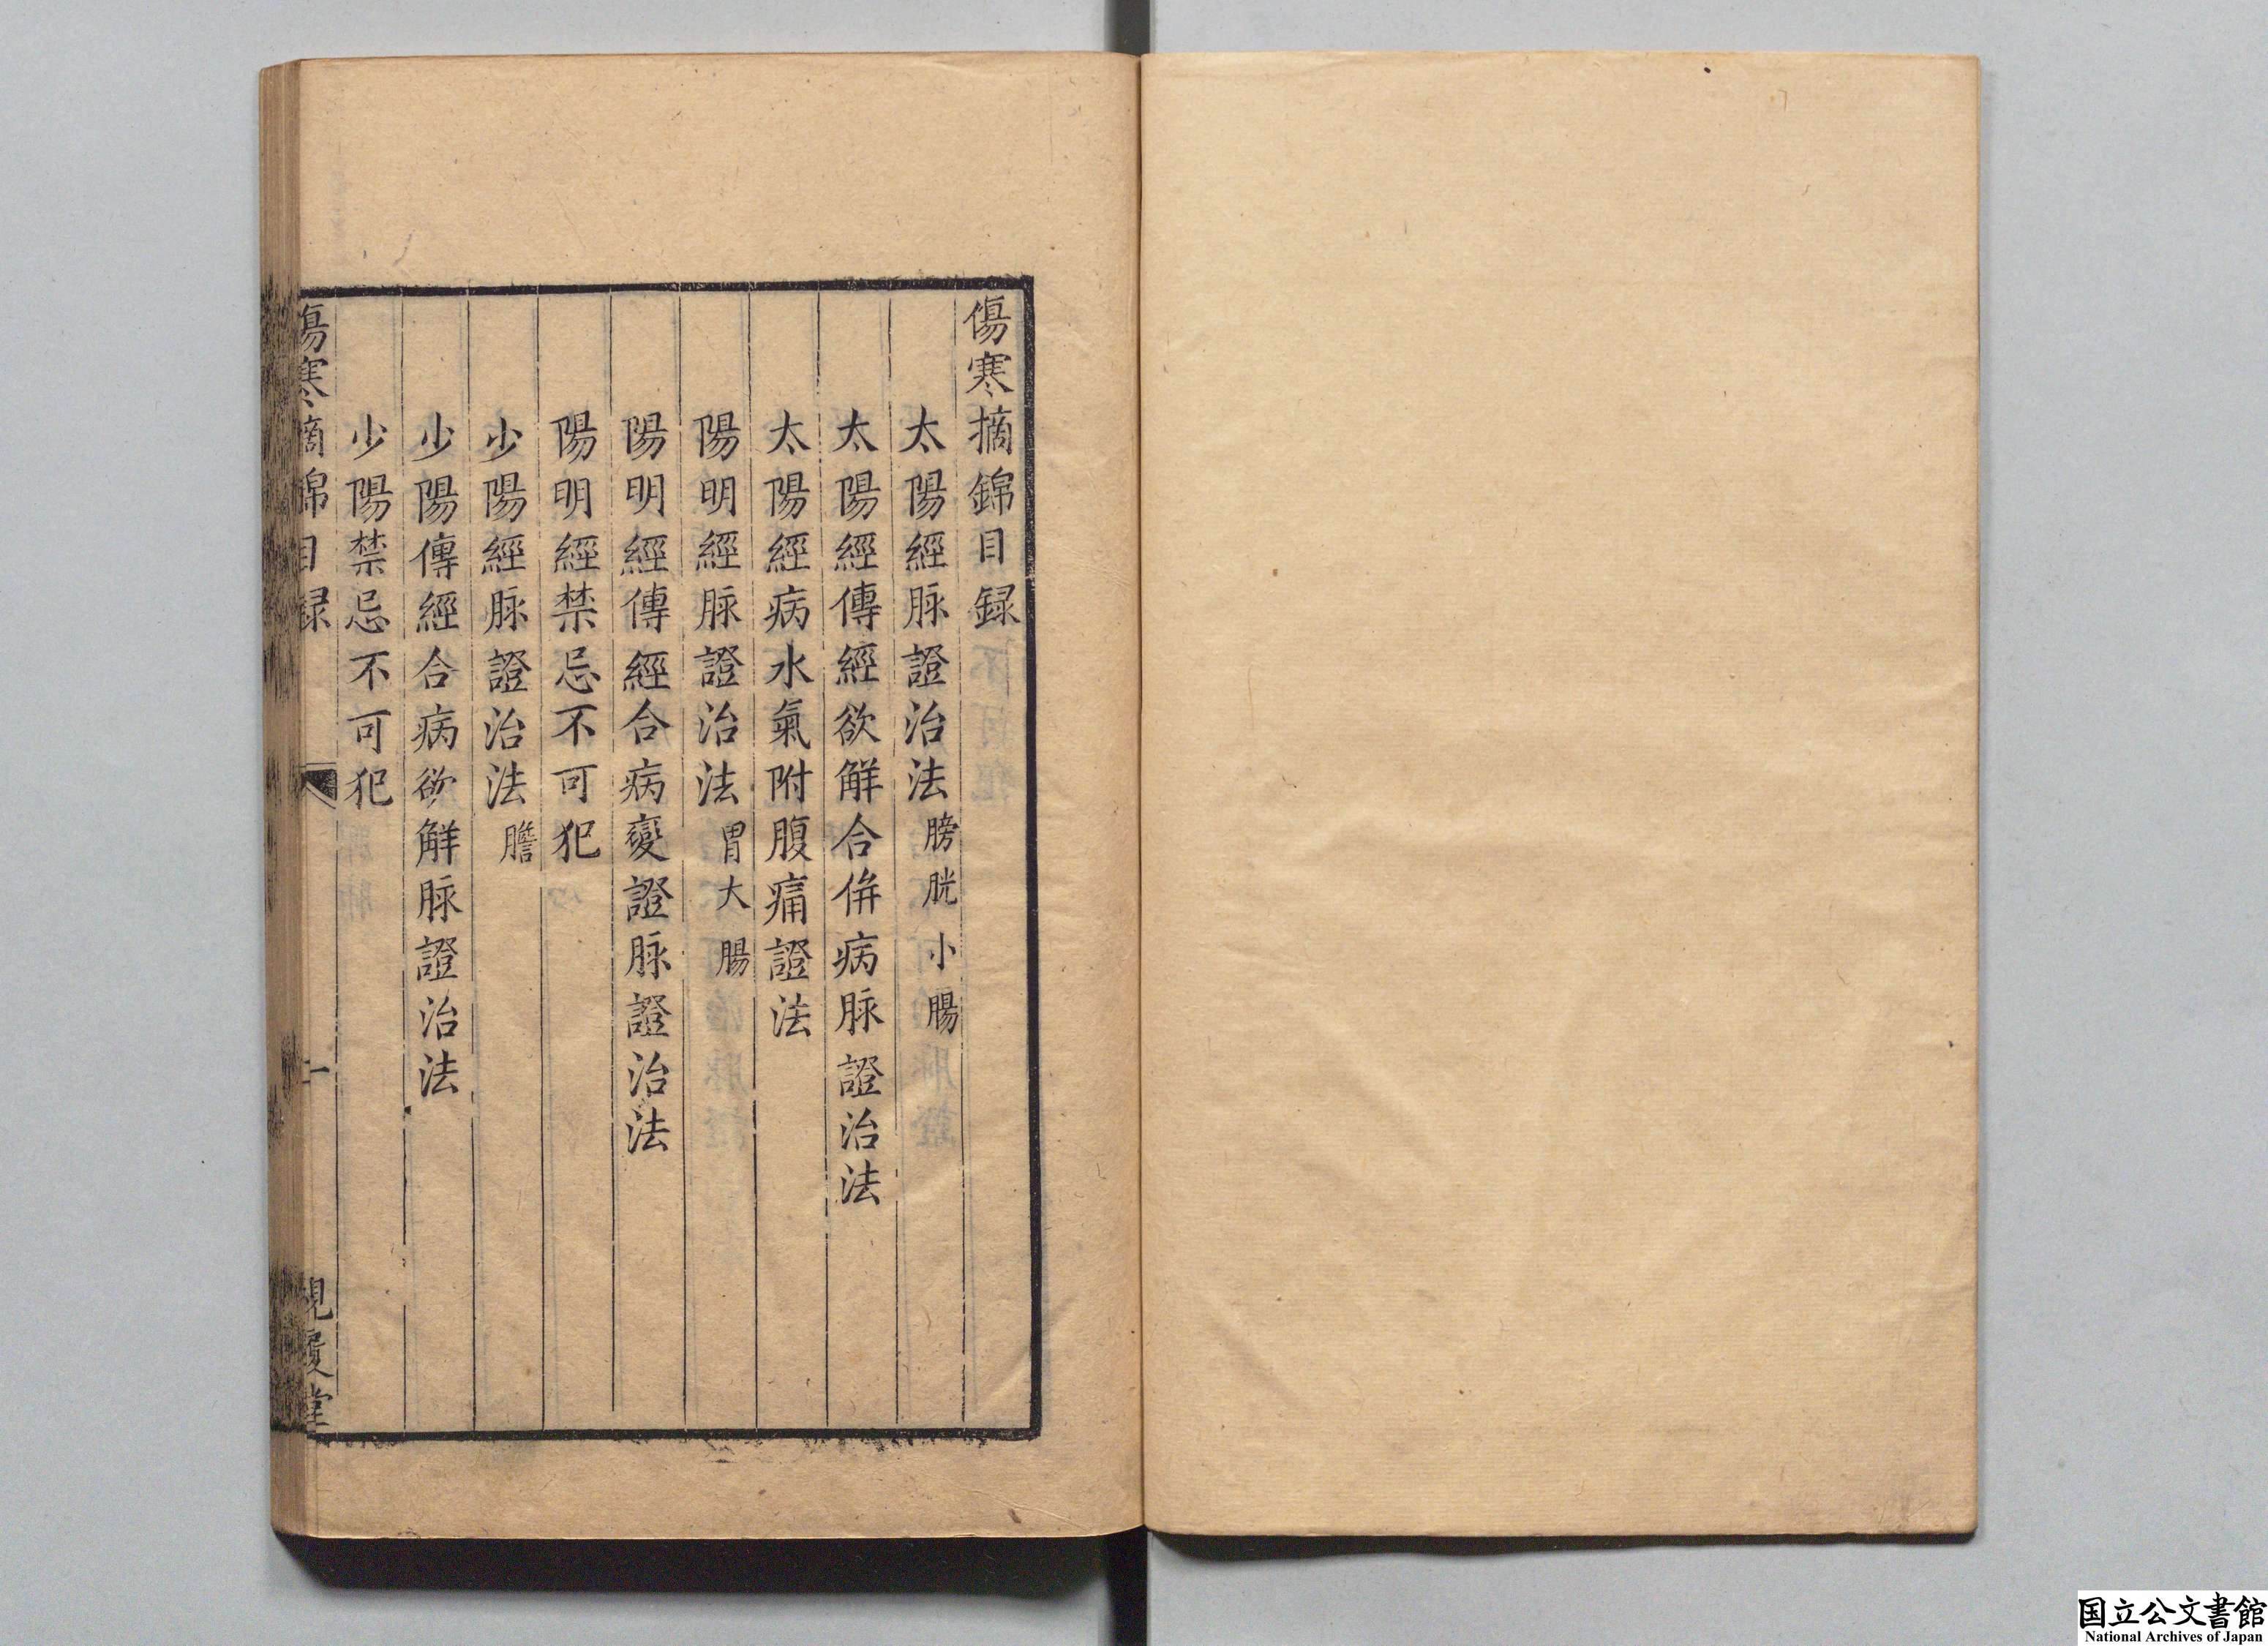 傷寒摘錦目録
太陽經脉證治法膀胱小腸
太陽經傳經欲解合併病脉證治法
太陽經病水氣附腹痛證法
陽明經脉證治法胃大腸
陽明經傳經合病變證脉證治法
陽明經禁忌不可犯
少陽經脉證治法膽
少陽傳經合病欲解脉證治法
少陽禁忌不可犯
傷寒摘錦目録 一 視履堂
国立公文書館
National Archives of Japan